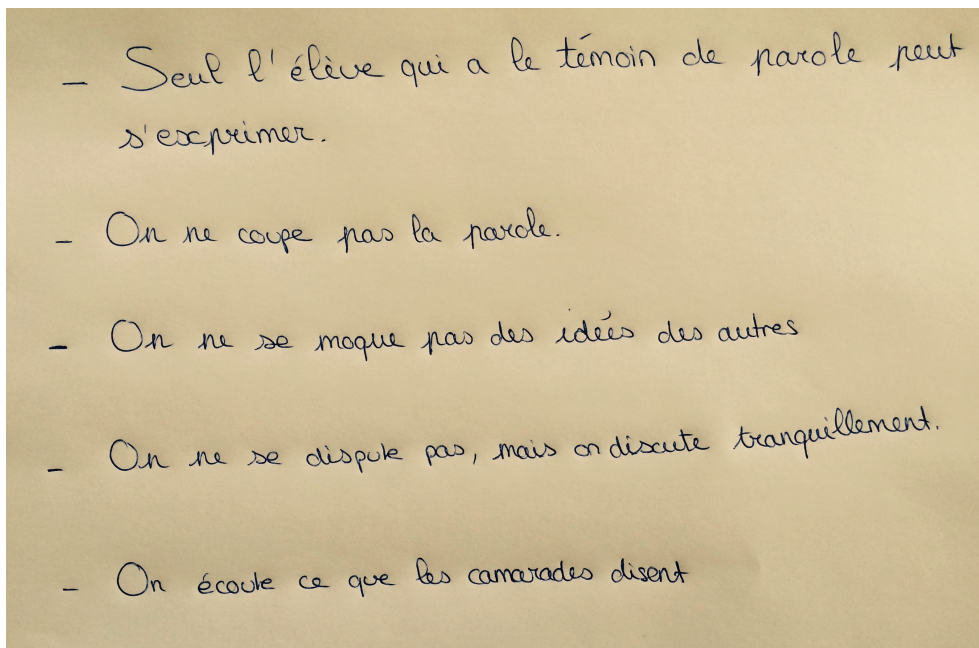 - Seul l'élève qui a le témoin de parole peut
s'exprimer.
- On ne coupe pas la parole.
- On ne se moque pas des idées des autres
- On ne se dispute pas, mais on discute tranquillement.
- On écoute ce que les camarades disent